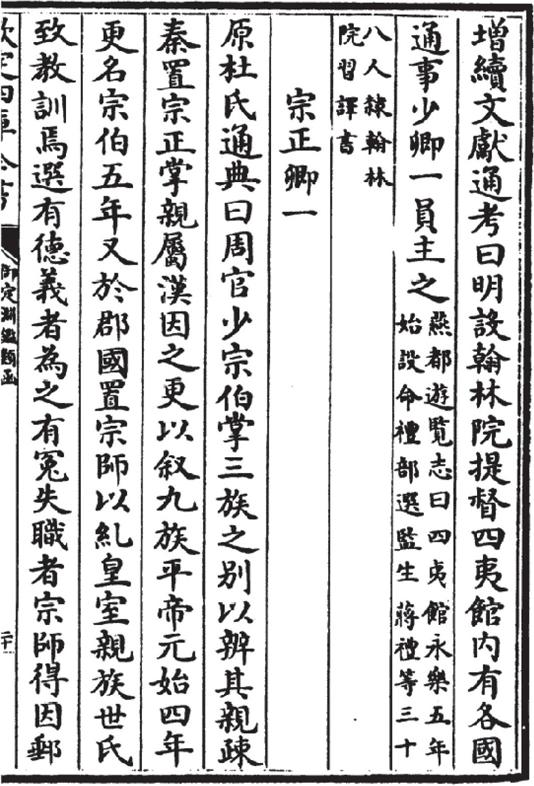 增續文獻通考曰明設翰林院提督四夷館内有各國
通事少卿一員主之燕都遊覽志曰四夷館永樂五年
始設命禮部選監生蔣禮等三十
八人隸翰林
院習譯書
宗正卿一
原杜氏通典曰周官少宗伯掌三族之别以辨其親疎
秦置宗正掌親屬漢因之更以叙九族平帝元始四年
更名宗伯五年又於郡國置宗師以糺皇室親族世氏
致教訓焉選有德義者為之有冤失職者宗師得因郵
欽定四庫全書
御定淵鑑類函
二十